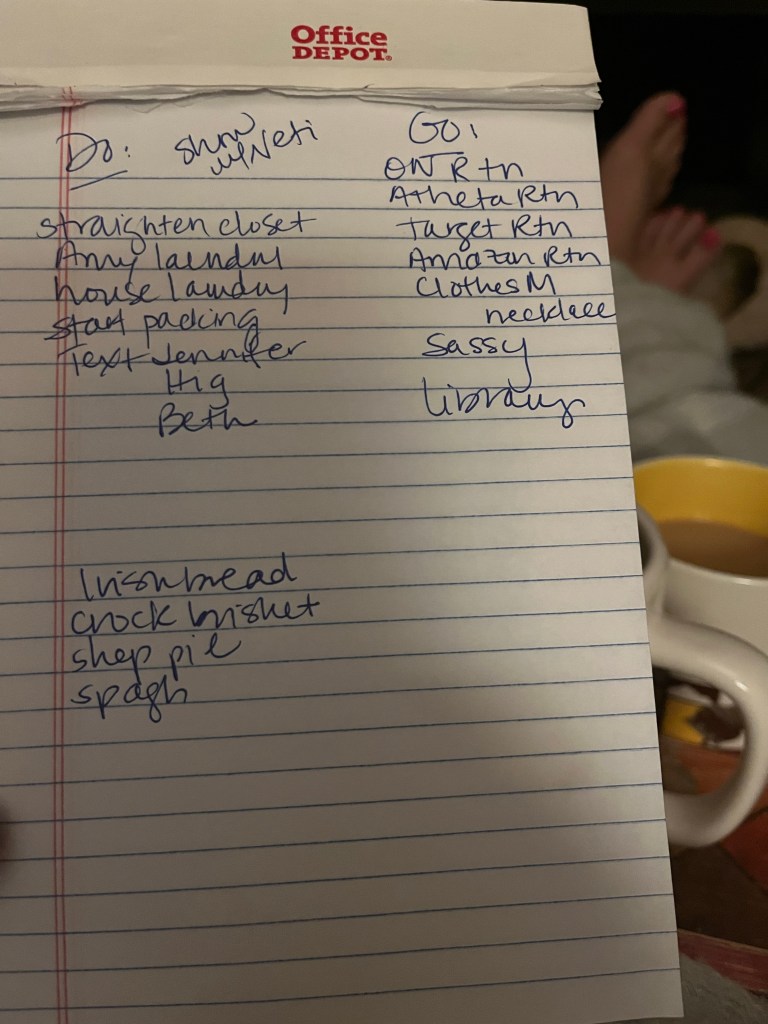 Office
DEPOT
Do:
w/Neti
straighten closet
Amy laundry
house laundry
start packing
Text Jennifer
Hig
Beth
GO:
ON Rtn
Atheta Rtn
Target Rtn
Amazon Rtn
Clothes M
necklace
Sassy
library
Irish bread
crock brisket
shep pie
spagh